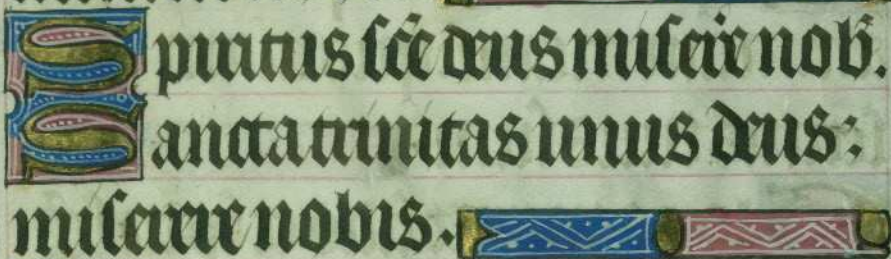 Spiritus sc̃e deus miserẽ nob̃.
Sancta trinitas unus deus:
miserere nobis.